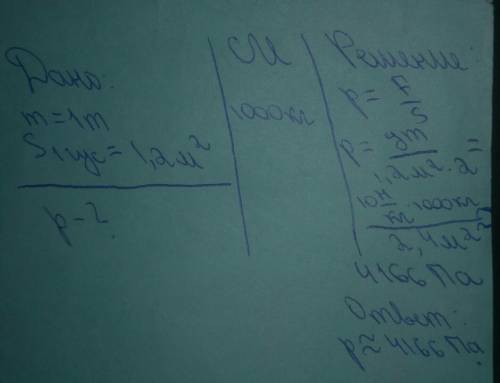 Дано:
m=1т
S1гус=1,2м²
p-?
СИ
1000кг
Решение:
p=F/S
p=gm/1,2м²·2=
10Н/кг·1000кг/2,4м²=
4166Па
Ответ:
p≈4166Па